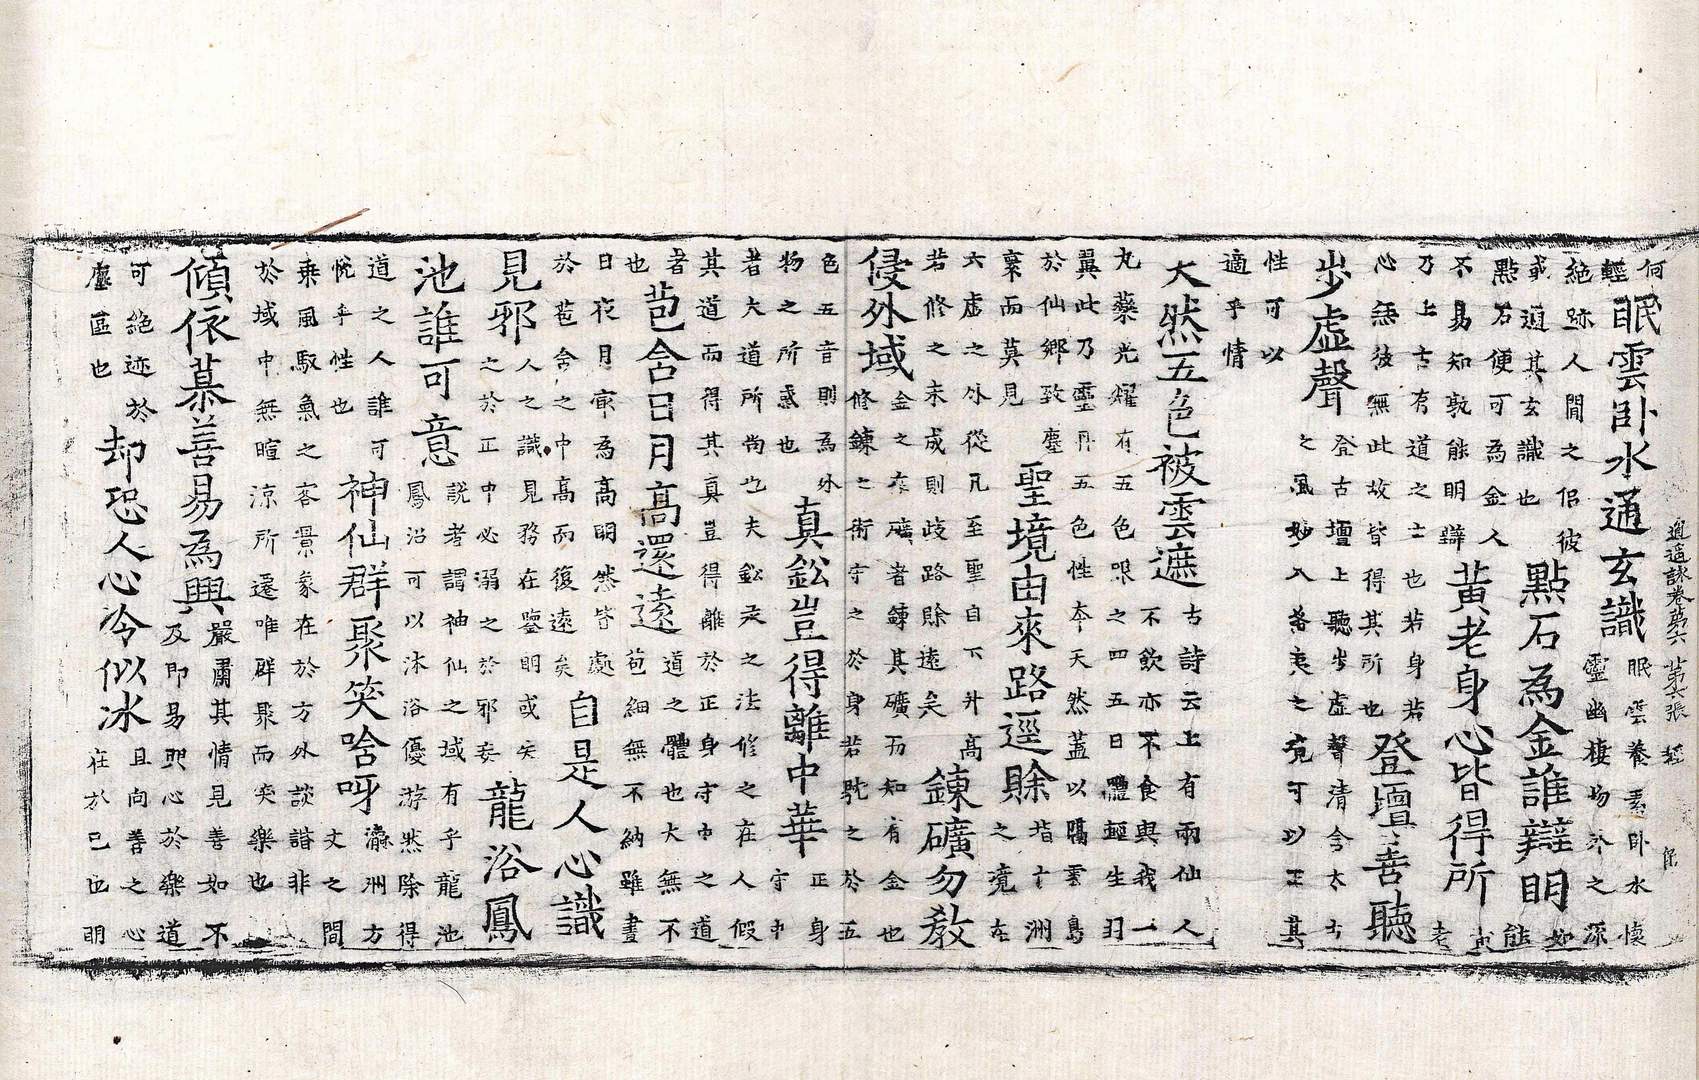 逍遙詠卷第六　第六張　輕
何
輕
眠雲臥水通玄識
眠雲養素臥水懷
靈幽棲物外之源
絶跡人間之侶彼
或通其玄識也
點石為金誰辯明
如
能
點石便可為金人
不易知孰能明辯
黃老身心皆得所
黃
老
乃上古有道之士也若身若
心無彼無此故皆得其所也
登壇善聽
步虛聲
登古壇上聽步虛聲清今太古
之風妙入希夷之境可以正其
性可以
適乎情
大然五色被雲遮
古詩云上有兩仙人
不飲亦不食與我一
丸藥光耀有五色服之四五日體輕生羽
翼此乃靈丹五色性本天然蓋以隔雲島
於仙鄉致塵
棄而莫見
聖境由來路逕賒
指十洲
之境在
六虛之外從凡至聖自下升高
若修之未成則歧路賒遠矣
鍊礦勿教
侵外域
金之在礦者鍊其礦而知有金也
修鍊之術守之於身若眈之於五
色五音則為外
物之所惑也
真鈆豈得離中華
正身
守中
者大道所尚也夫鈆汞之法修之在人假
其道而得其真豈得離於正身守中之道
者
也
苞含日月高還遠
道之體也大無不
苞細無不納雖晝
日夜月宵為高明然皆處
於苞含之中高而復遠矣
自是人心識
見邪
人之識見務在鑒明或失
之於正中必溺之於邪妄
龍浴鳳
池誰可意
說者謂神仙之域有乎龍池
鳳沼可以沐浴優游然除得
道之人誰可
悅乎性也
神仙群聚笑唅呀
瀛洲方
丈之間
乘風馭氣之客景象在於方外談諧非
於域中無暄涼所遷唯群聚而笑樂也
傾依慕善易為興
嚴肅其情見善如不
及即易興心於樂道
可絶迹於
塵區也
却恐人心冷似冰
且向善之心
在於已也明